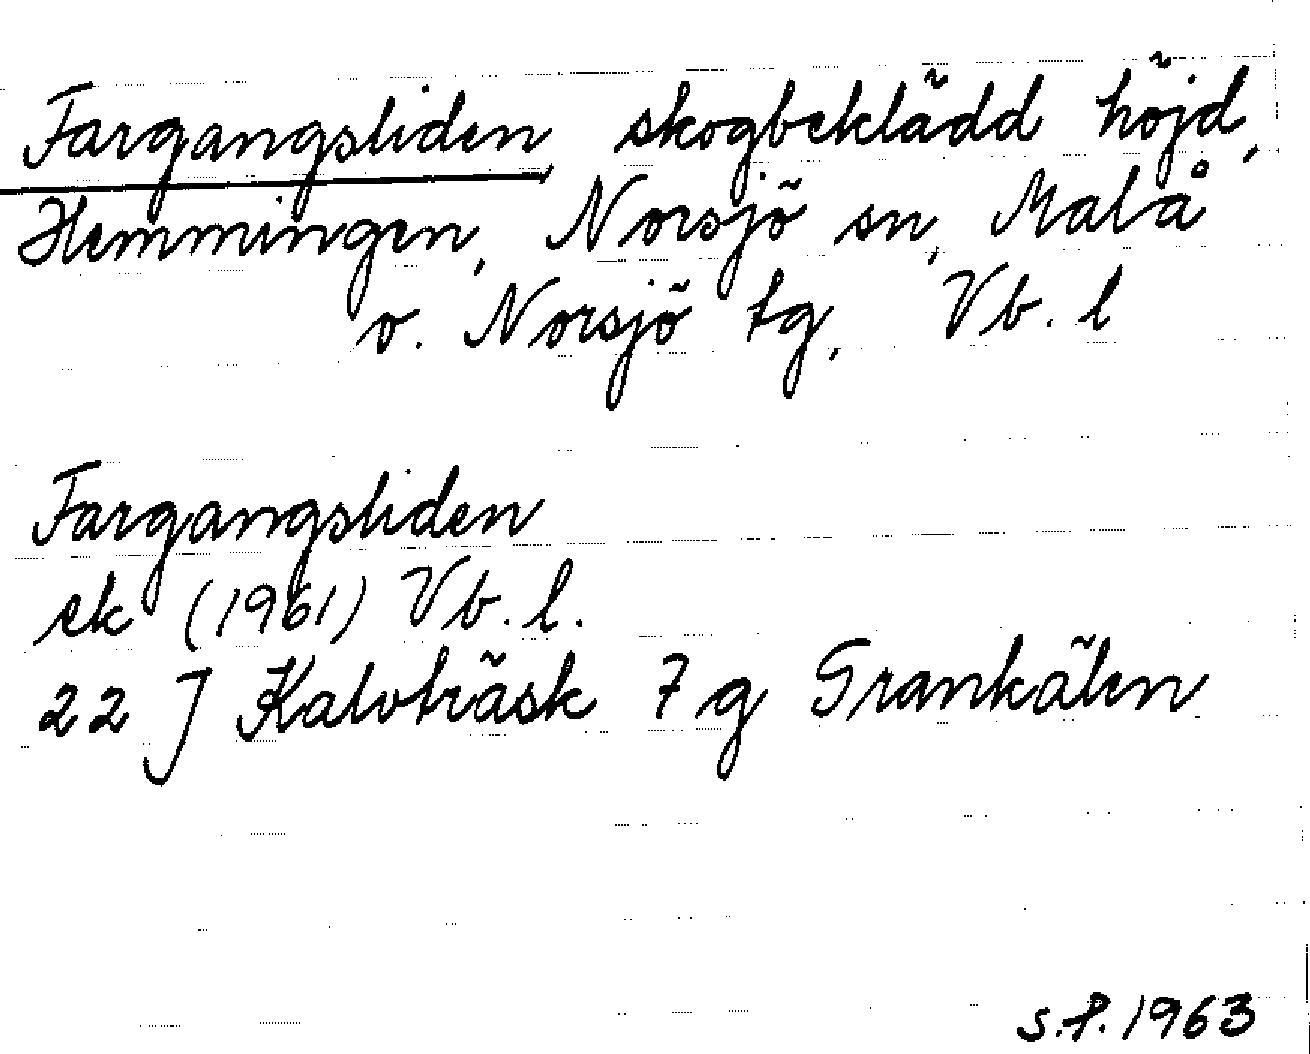 Fargangsliden, skogbeklädd höjd,
Hemmingen, Norsjö sn, Malå
o. Norsjö tg, Vb. l
Fargangsliden
ek (1961) Vb. l.
22 J Kalvträsk 7 g Grankälen
s.f. 1963